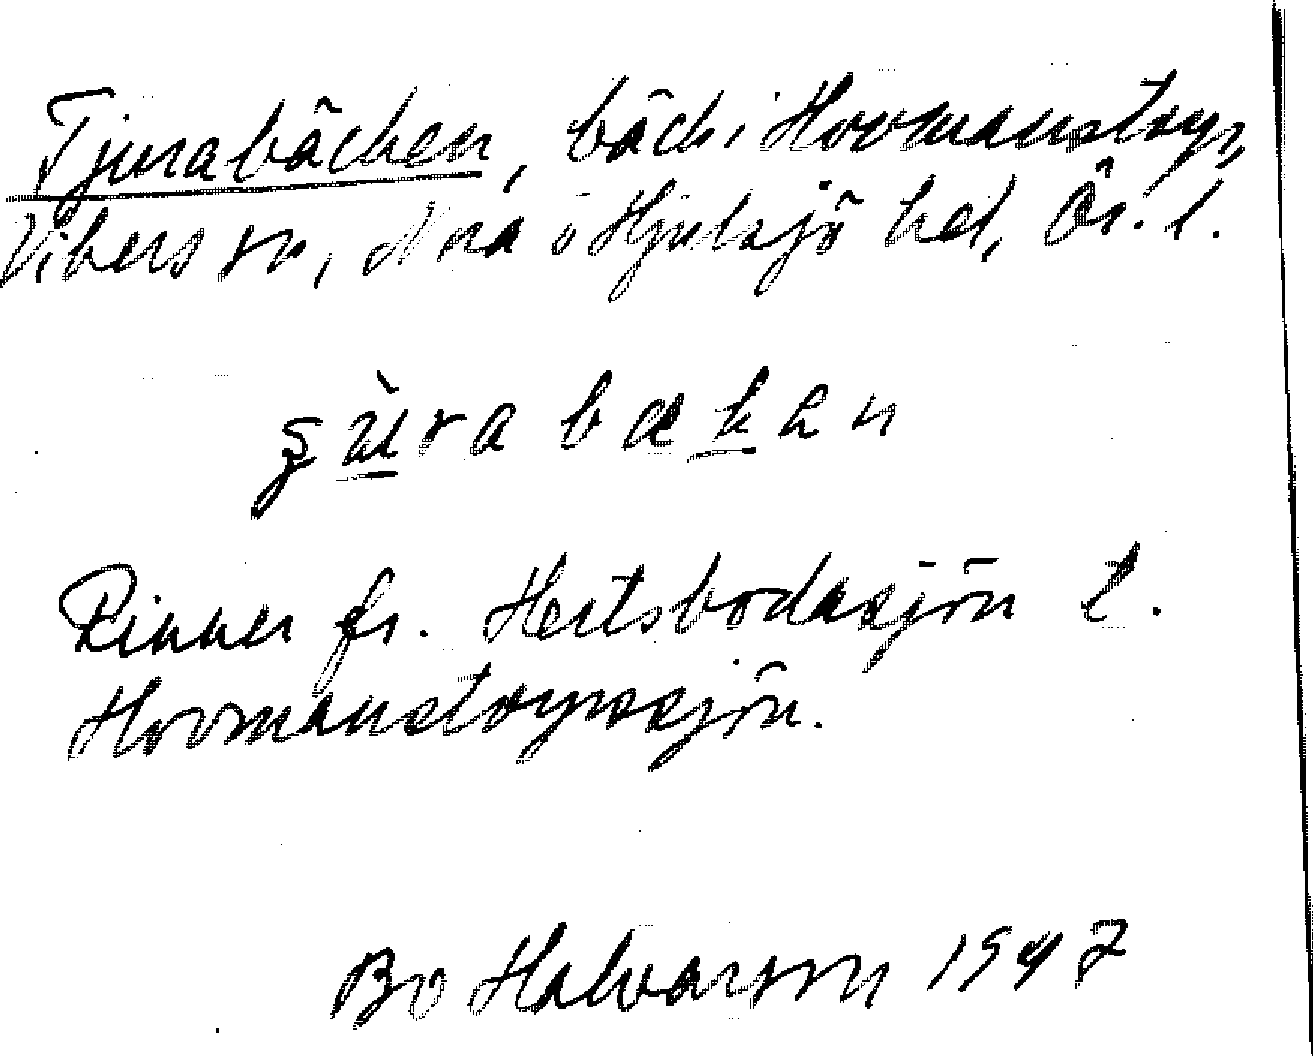 Tjurabäcken, bäck i Hovmanstorp,
Vibers sn, Nora o Hjulsjö hd, Ör. l.
bækan
Rinner fr. Hertsbodasjön t.
Hovmanstorpssjön.
Bo Halvarson 1947